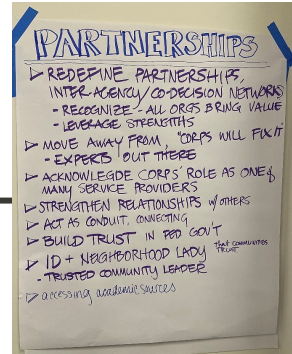 PARTNERSHIPS
▷ REDEFINE PARTNERSHIPS,
INTER-AGENCY/CO-DECISION NETWORKS
- RECOGNIZE - ALL ORGS BRING VALUE
- LEVERAGE STRENGTHS
▷ MOVE AWAY FROM, "CORPS WILL FIX IT"
- EXPERTS OUT THERE
▷ ACKNOWLEGDE CORPS' ROLE AS ONE of
MANY SERVICE PROVIDERS
▷ STRENGTHEN RELATIONSHIPS w/OTHERS
▷ ACT AS CONDUIT, CONNECTING
▷ BUILD TRUST IN FED GOV'T
▷ ID + NEIGHBORHOOD LADY that communities
TRUST
- TRUSTED COMMUNITY LEADER
▷ accessing academic sources